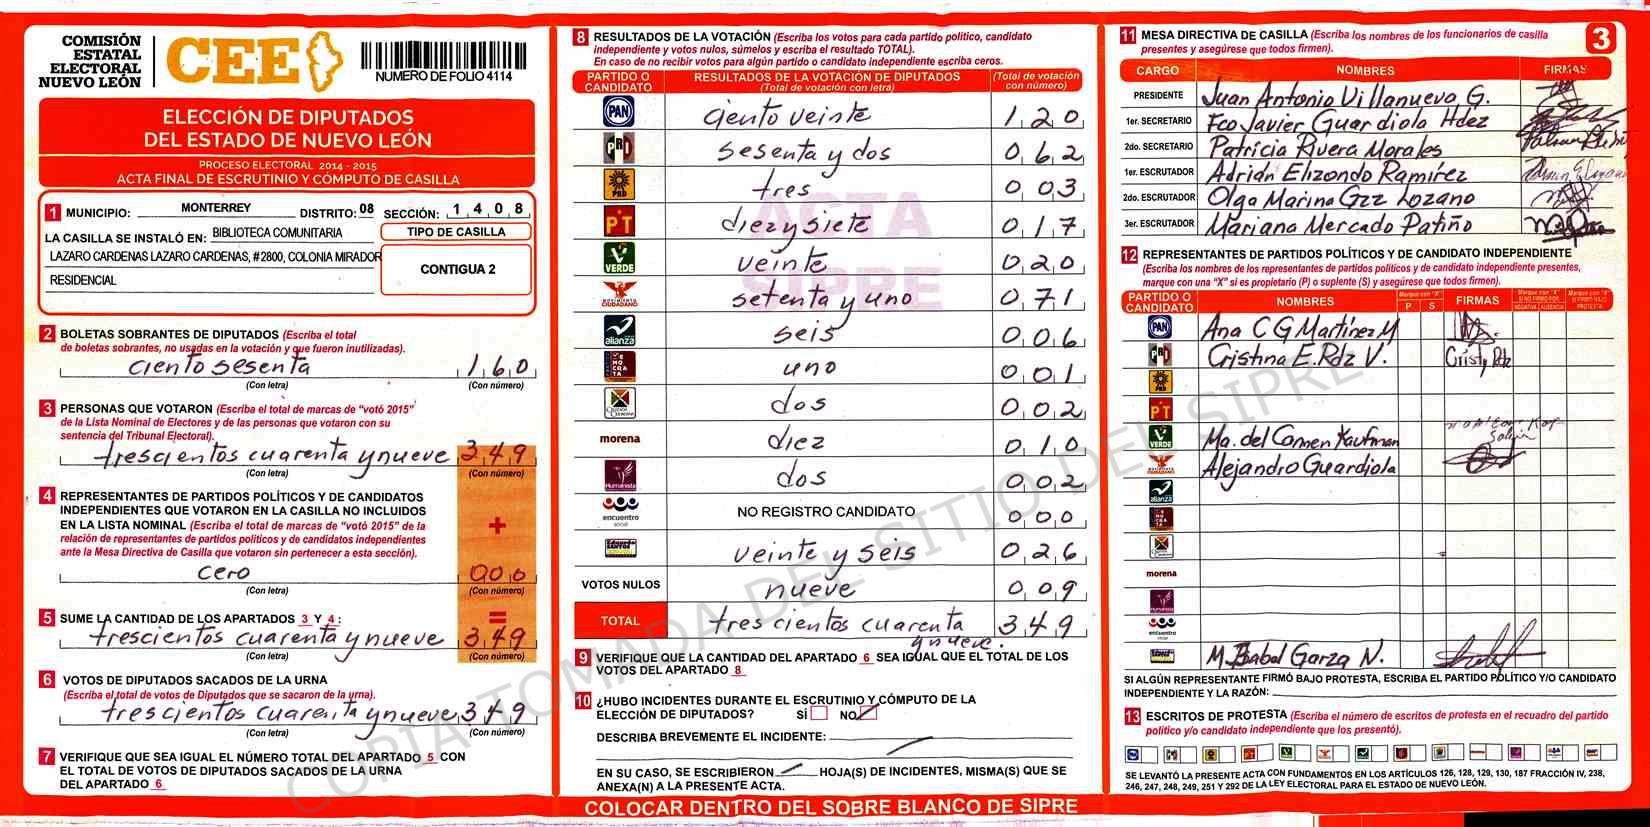 COMISIÓN
ESTATAL
ELECTORAL
NUEVO LEÓN
CEE
NUMERO DE FOLIO 4114
ELECCIÓN DE DIPUTADOS
DEL ESTADO DE NUEVO LEÓN
PROCESO ELECTORAL 2014 - 2015
ACTA FINAL DE ESCRUTINIO Y CÓMPUTO DE CASILLA
1 MUNICIPIO: MONTERREY DISTRITO: 08 SECCIÓN: 1 4 0 8
LA CASILLA SE INSTALÓ EN: BIBLIOTECA COMUNITARIA
TIPO DE CASILLA
LAZARO CARDENAS LAZARO CARDENAS, #2800, COLONIA MIRADOR
RESIDENCIAL
CONTIGUA 2
2 BOLETAS SOBRANTES DE DIPUTADOS (Escriba el total
de boletas sobrantes, no usadas en la votación y que fueron inutilizadas).
ciento sesenta 1 6 0
(Con letra) (Con número)
3 PERSONAS QUE VOTARON (Escriba el total de marcas de "votó 2015"
de la Lista Nominal de Electores y de las personas que votaron con su
sentencia del Tribunal Electoral).
trescientos cuarenta y nueve 3 4 9
(Con letra) (Con número)
4 REPRESENTANTES DE PARTIDOS POLÍTICOS Y DE CANDIDATOS
INDEPENDIENTES QUE VOTARON EN LA CASILLA NO INCLUIDOS
EN LA LISTA NOMINAL (Escriba el total de marcas de "votó 2015" de la
relación de representantes de partidos políticos y de candidatos independientes
ante la Mesa Directiva de Casilla que votaron sin pertenecer a esta sección).
+
cero 0 0 0
(Con letra) (Con número)
=
5 SUME LA CANTIDAD DE LOS APARTADOS 3 Y 4:
trescientos cuarenta y nueve 3 4 9
(Con letra) (Con número)
6 VOTOS DE DIPUTADOS SACADOS DE LA URNA
(Escriba el total de votos de Diputados que se sacaron de la urna).
trescientos cuarenta y nueve 3 4 9
(Con letra) (Con número)
7 VERIFIQUE QUE SEA IGUAL EL NÚMERO TOTAL DEL APARTADO 5 CON
EL TOTAL DE VOTOS DE DIPUTADOS SACADOS DE LA URNA
DEL APARTADO 6
8 RESULTADOS DE LA VOTACIÓN (Escriba los votos para cada partido político, candidato
independiente y votos nulos, súmelos y escriba el resultado TOTAL).
En caso de no recibir votos para algún partido o candidato independiente escriba ceros.
PARTIDO O CANDIDATO RESULTADOS DE LA VOTACIÓN DE DIPUTADOS (Total de votación con letra) (Total de votación con número)
PAN ciento veinte 1 2 0
PRD sesenta y dos 0 6 2
PRD tres 0 0 3
PT diez y siete 0 1 7
VERDE veinte 0 2 0
MOVIMIENTO CIUDADANO setenta y uno 0 7 1
alianza seis 0 0 6
DEMOCRATA uno 0 0 1
dos 0 0 2
morena diez 0 1 0
Humanista dos 0 0 2
encuentro social NO REGISTRO CANDIDATO 0 0 0
veinte y seis 0 2 6
VOTOS NULOS nueve 0 0 9
TOTAL trescientos cuarenta 3 4 9
y nueve.
ACTA
SIPRE
9 VERIFIQUE QUE LA CANTIDAD DEL APARTADO 6 SEA IGUAL QUE EL TOTAL DE LOS
VOTOS DEL APARTADO 8
10 ¿HUBO INCIDENTES DURANTE EL ESCRUTINIO Y CÓMPUTO DE LA
ELECCIÓN DE DIPUTADOS? SÍ NO
DESCRIBA BREVEMENTE EL INCIDENTE:
EN SU CASO, SE ESCRIBIERON HOJA(S) DE INCIDENTES, MISMA(S) QUE SE
ANEXA(N) A LA PRESENTE ACTA.
COLOCAR DENTRO DEL SOBRE BLANCO DE SIPRE
11 MESA DIRECTIVA DE CASILLA (Escriba los nombres de los funcionarios de casilla
presentes y asegúrese que todos firmen).
3
CARGO NOMBRES FIRMAS
PRESIDENTE Juan Antonio Villanueva G.
1er. SECRETARIO Fco Javier Guardiola Hdez
2do. SECRETARIO Patricia Rivera Morales
1er. ESCRUTADOR Adrián Elizondo Ramírez
2do. ESCRUTADOR Olga Marina Gzz Lozano
3er. ESCRUTADOR Mariana Mercado Patiño
12 REPRESENTANTES DE PARTIDOS POLÍTICOS Y DE CANDIDATO INDEPENDIENTE
(Escriba los nombres de los representantes de partidos políticos y de candidato independiente presentes,
marque con una "X" si es propietario (P) o suplente (S) y asegúrese que todos firmen).
PARTIDO O CANDIDATO NOMBRES Marque con "X" P S FIRMAS Marque con "X" SI NO FIRMÓ POR NEGATIVA AUSENCIA Marque con "X" SI FIRMÓ BAJO PROTESTA
PAN Ana C G Martínez M
Cristina E. Rdz V. Cristy Rdz
PRD
PT
VERDE Ma. del Carmen Kaufman
Alejandro Guardiola
alianza
morena
encuentro
M. Isabel Garza N.
SI ALGÚN REPRESENTANTE FIRMÓ BAJO PROTESTA, ESCRIBA EL PARTIDO POLÍTICO Y/O CANDIDATO
INDEPENDIENTE Y LA RAZÓN:
13 ESCRITOS DE PROTESTA (Escriba el número de escritos de protesta en el recuadro del partido
político y/o candidato independiente que los presentó).
SE LEVANTÓ LA PRESENTE ACTA CON FUNDAMENTOS EN LOS ARTÍCULOS 126, 128, 129, 130, 187 FRACCIÓN IV, 238,
246, 247, 248, 249, 251 Y 292 DE LA LEY ELECTORAL PARA EL ESTADO DE NUEVO LEÓN.
COPIA TOMADA DEL SITIO DEL SIPRE